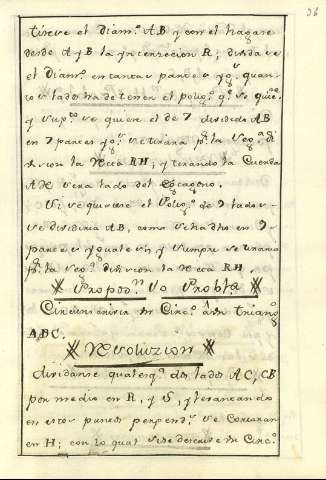 36
tirese el Diam.o AB y con el hagase
desde A y B la ynterseccion R; dividase
el Diam.o en tantas partes
lados ha de tener el polig.o q.e se
y sup.to se quiere el de 7 dividido AB
en 7 partes se tirara p.r la seg.a di
vision la Recta RH; y tirando la Cuerda
AH sera lado del
Si se quisiese el Polig.o de 9 lados
se dividiria AB, como se ha dho en 9
partes yguales y siempre se tirara
p.r la seg.a division la Recta RH.
Propos.n Probl.a
Circunscrivir un Circ.o à un Triang.o
ABC.
Resoluzion
dividanse qualesq.a dos lados AC, CB
por medio en R, y S, y levantando
en estos puntos perpend.s se cortaran
en H; con lo qual si se descrive un Circ.o